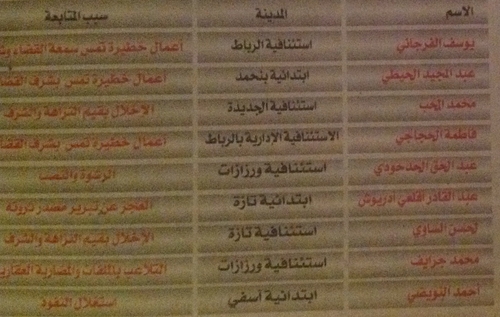 الاسم المدينة سبب المتابعة
يوسف الفرجاني استئنافية الرباط أعمال خطيرة تمس سمعة القضاء
عبد المجيد الحيطي ابتدائية بنحمد أعمال خطيرة تمس بشرف القضاء
محمد المخب استئنافية الجديدة الإخلال بقيم النزاهة والشرف
فاطمة الحجاجي الاستئنافية الإدارية بالرباط أعمال خطيرة تمس بشرف القضاء
عبد الحق الحدحودي استئنافية ورزازات الرشوة والنصب
عبد القادر أفلعي ادريوش ابتدائية تازة العجز عن تبرير مصدر ثروته
لحسن الساوي استئنافية تازة الإخلال بقيم النزاهة والشرف
محمد جرايف استئنافية ورزازات التلاعب بالملفات والمضاربة العقارية
أحمد البويضي ابتدائية أسفي استغلال النفوذ